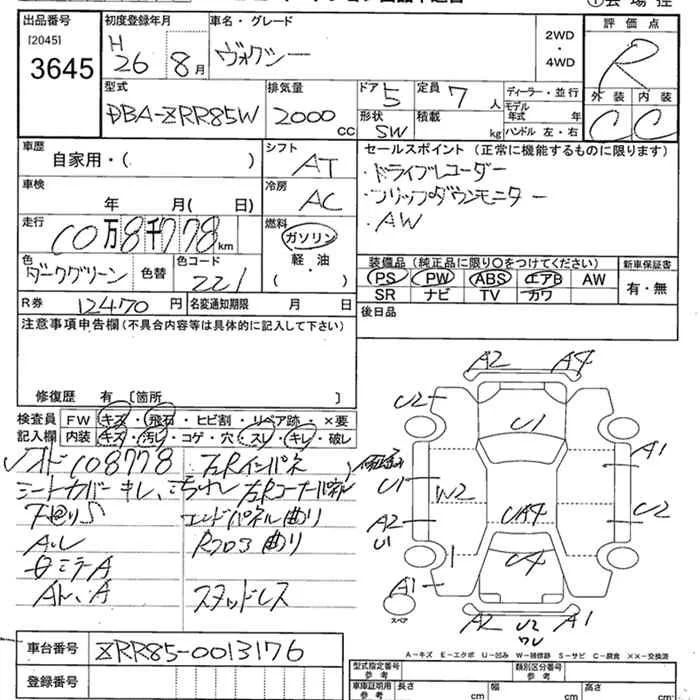 出品番号 初度登録年月 車名・グレード 評価点
[2045] 3645 H 26 8月 ヴォクシー 2WD・4WD R
外装 内装
C C
型式 排気量 ドア 定員 ディーラー・並行
DBA-ZRR85W 2000 CC 5 7人 モデル年式 年
形状 積載
SW kg ハンドル 左・右
車歴 シフト セールスポイント(正常に機能するものに限ります)
自家用・( ) AT ・ドライブレコーダー
車検 冷房 ・フリップダウンモニター
年 月( 日) AC ・AW
走行 燃料
10万8千778km ガソリン・軽油・( )
色 色替 色コード 装備品(純正品に限り○をつけてください) 新車保証書
ダークグリーン 221 PS PW ABS エアB AW 有・無
SR ナビ TV カワ
R券 12470円 名変通知期限 月 日 後日品
注意事項申告欄(不具合内容等は具体的に記入して下さい)
修復歴 有 [箇所 ]
検査員 FW キズ・飛石・ヒビ割・リペア跡・×要
記入欄 内装 キズ・汚レ・コゲ・穴・スレ・キレ・破レ
108778 左Rインパネ
シートカバーキレ、 左Rコーナーパネル
エンドパネル曲り
Rフロア曲り
スタッドレス
A2 A4
U2 U1 A1
U1 W2 U2
A2 U1 UA4
U4
A1 A2 U2 A1
スペア
A－キズ E－エクボ U－凹み W－補修跡 S－サビ C－腐食 ××－交換済
車台番号 ZRR85-0013176
登録番号
型式指定番号 参考 類別区分番号 参考
車庫証明用 参考 長さ cm 幅 cm 高さ cm